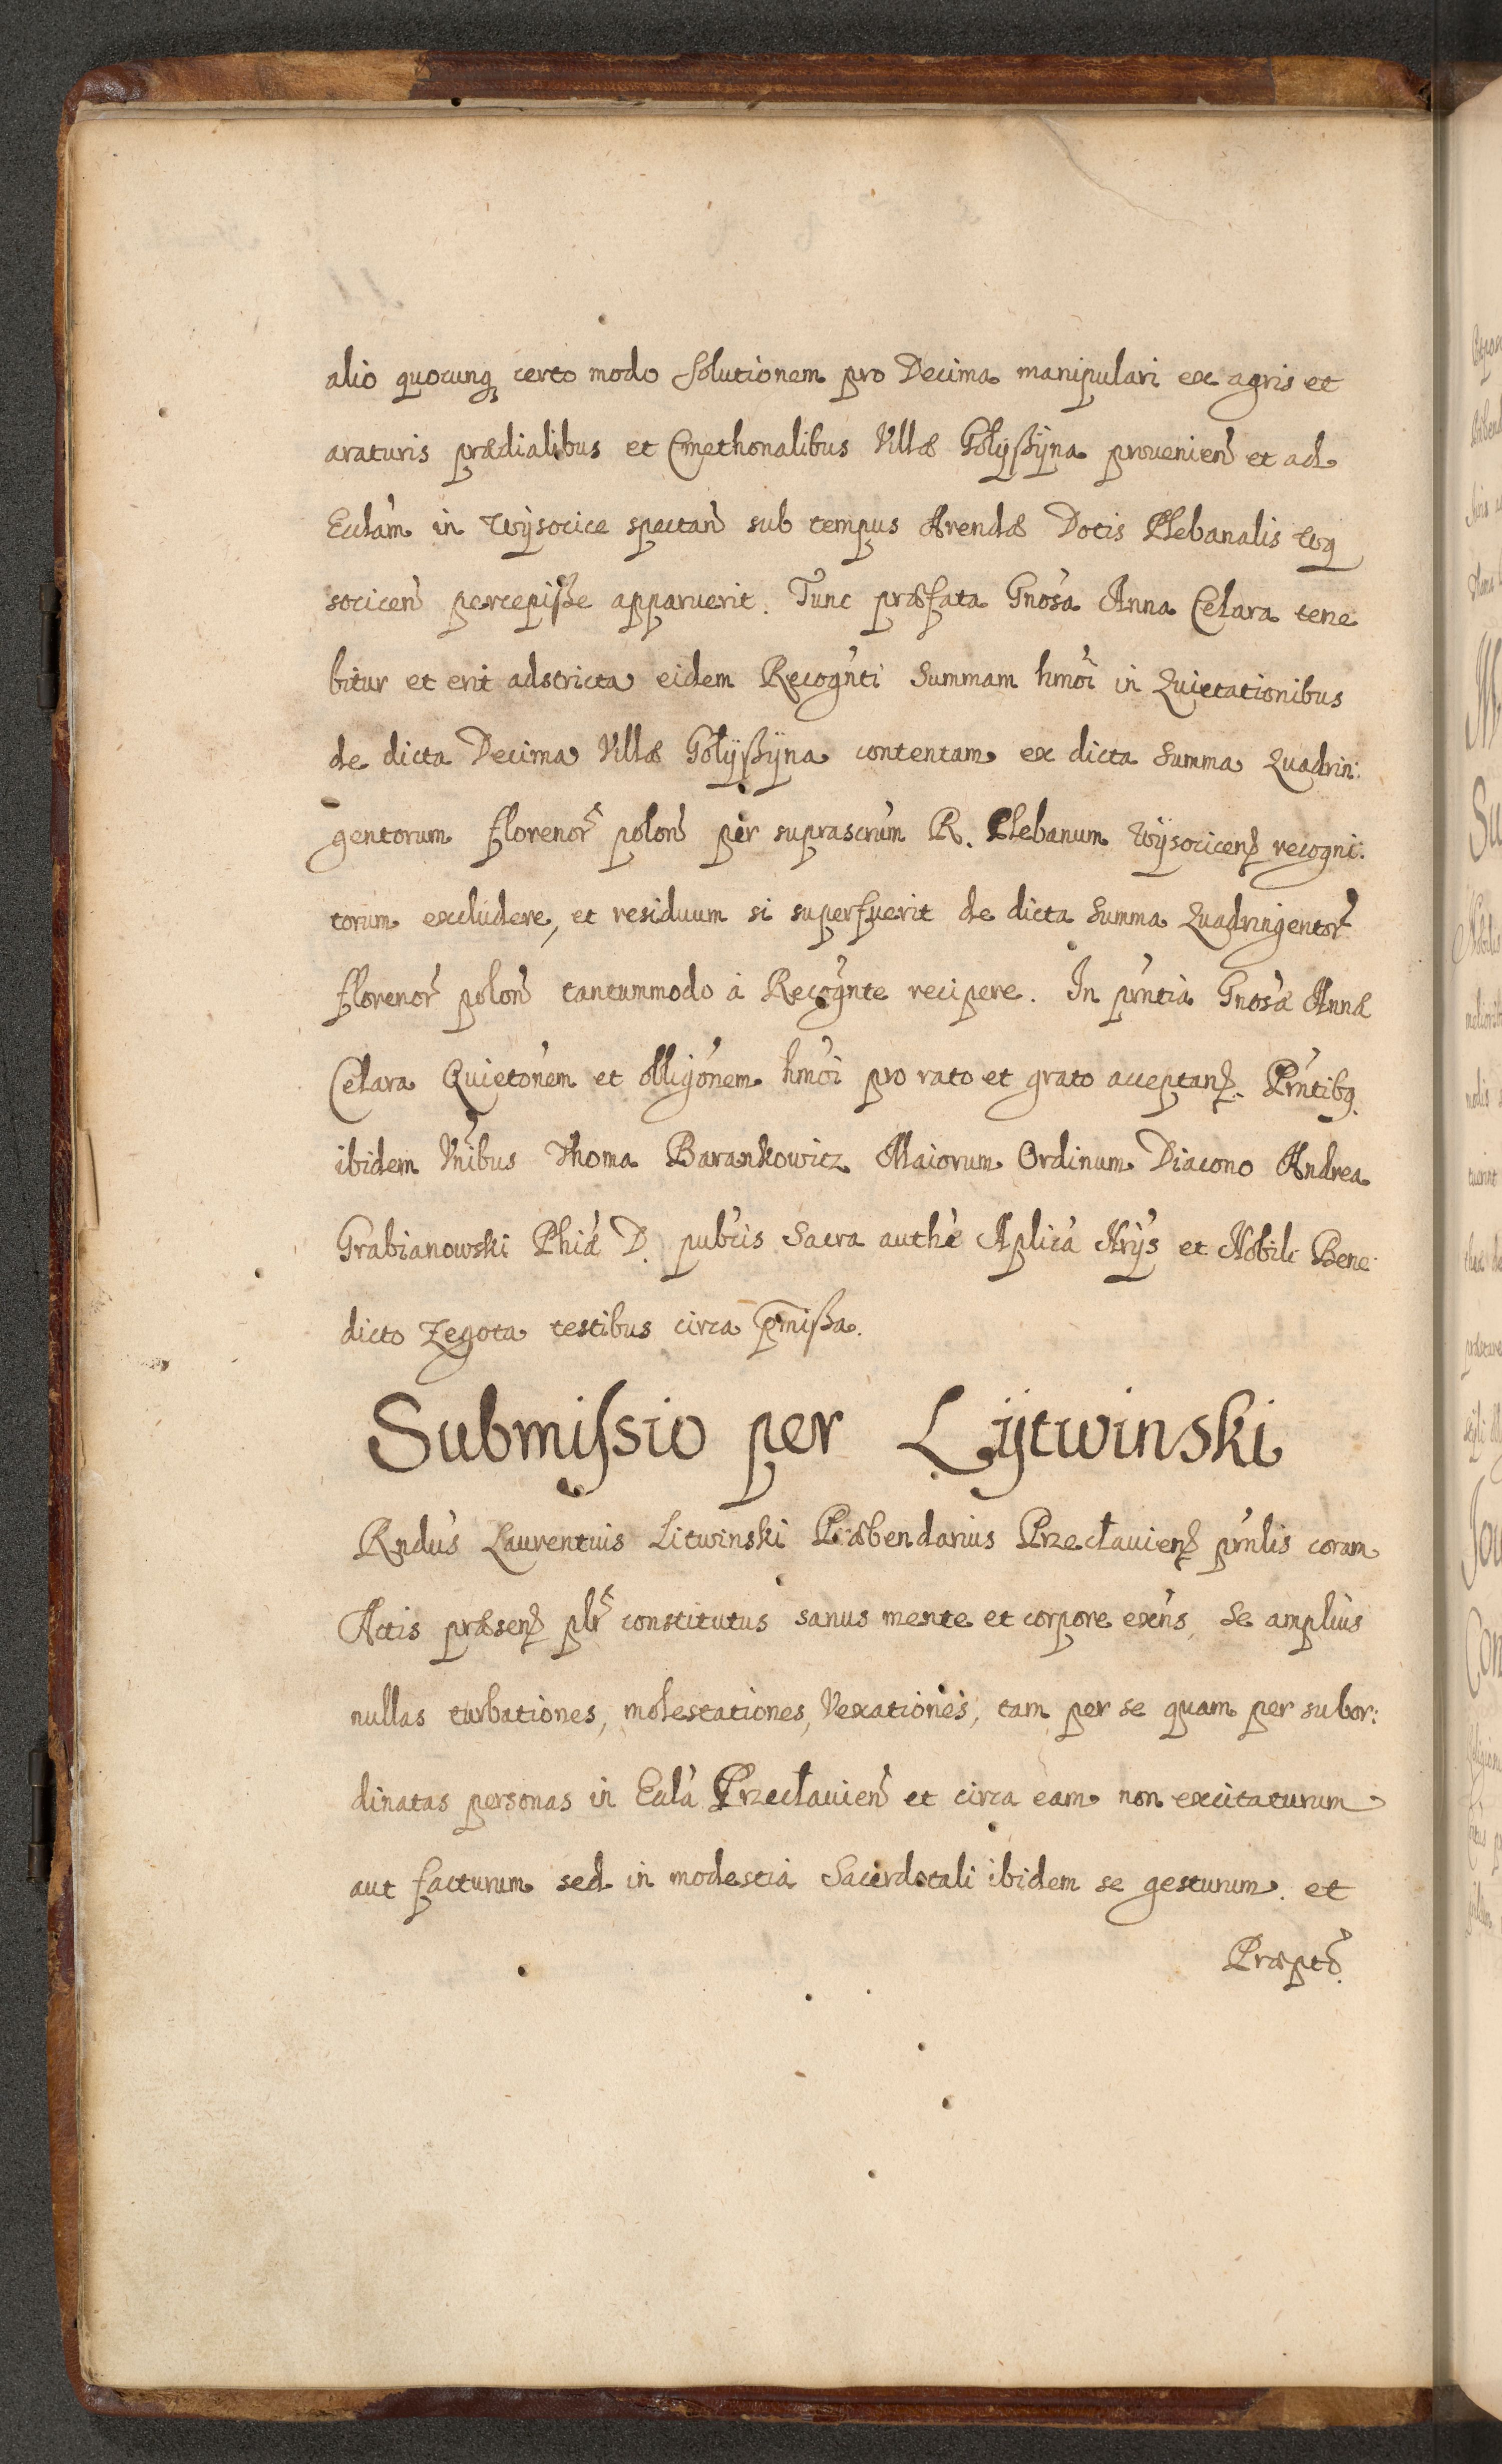 alio quocunq₃ certo modo Solutionem pro Decima manipulari ex agris et
araturis prædialibus et Cmethonalibus Villæ Gołÿßÿna prouenien̄ et ad
Eccłam in Wÿsocice spectan̄ sub tempus Arendæ Dotis Plebanalis Wÿ
socicen̄ percepiße apparuerit. Tunc præfata Gnosa Anna Celara tene
bitur et erit adstricta eidem Recogn̄ti Summam hmōi in Quietationibus
de dicta Decima Villæ Gołÿßÿna contentam ex dicta Summa Quadrin:
gentorum florenor̄ polon̄ per suprascrūm R. Plebanum Wÿsocicen̄ recogni:
torum excludere, et residuum si superfuerit de dicta Summa Quadringentor̄
florenor̄ polon̄ tantummodo à Recogn̄te recipere. In pn̄tia Gnosæ Annæ
Celara Quietōnem et obligōnem hmōi pro rato et grato acceptan̄. Prn̄tibq.
ibidem Vn̄ibus Thoma Barankowicz Maiorum Ordinum Diacono Andrea
Grabianowski Phiæ D. pubcis Sacra authē Aplica Nrÿs et Nobili Bene:
dicto Zegota testibus circa p̄mißa.
Submiſsio per Lÿtwinski
Rndus Laurentius Litwinski Præbendarius Przecłauien̄ prn̄lis coram
Actis præsen̄ plr̄ constitutus sanus mente et corpore exn̄s, se amplius
nullas turbationes, molestationes, Vexationes, tam per se quam per subor:
dinatas personas in Eccła Przecłauien̄ et circa eam non excitaturum
aut facturum sed in modestia Sacerdotali ibidem se gesturum. et
Præptō.